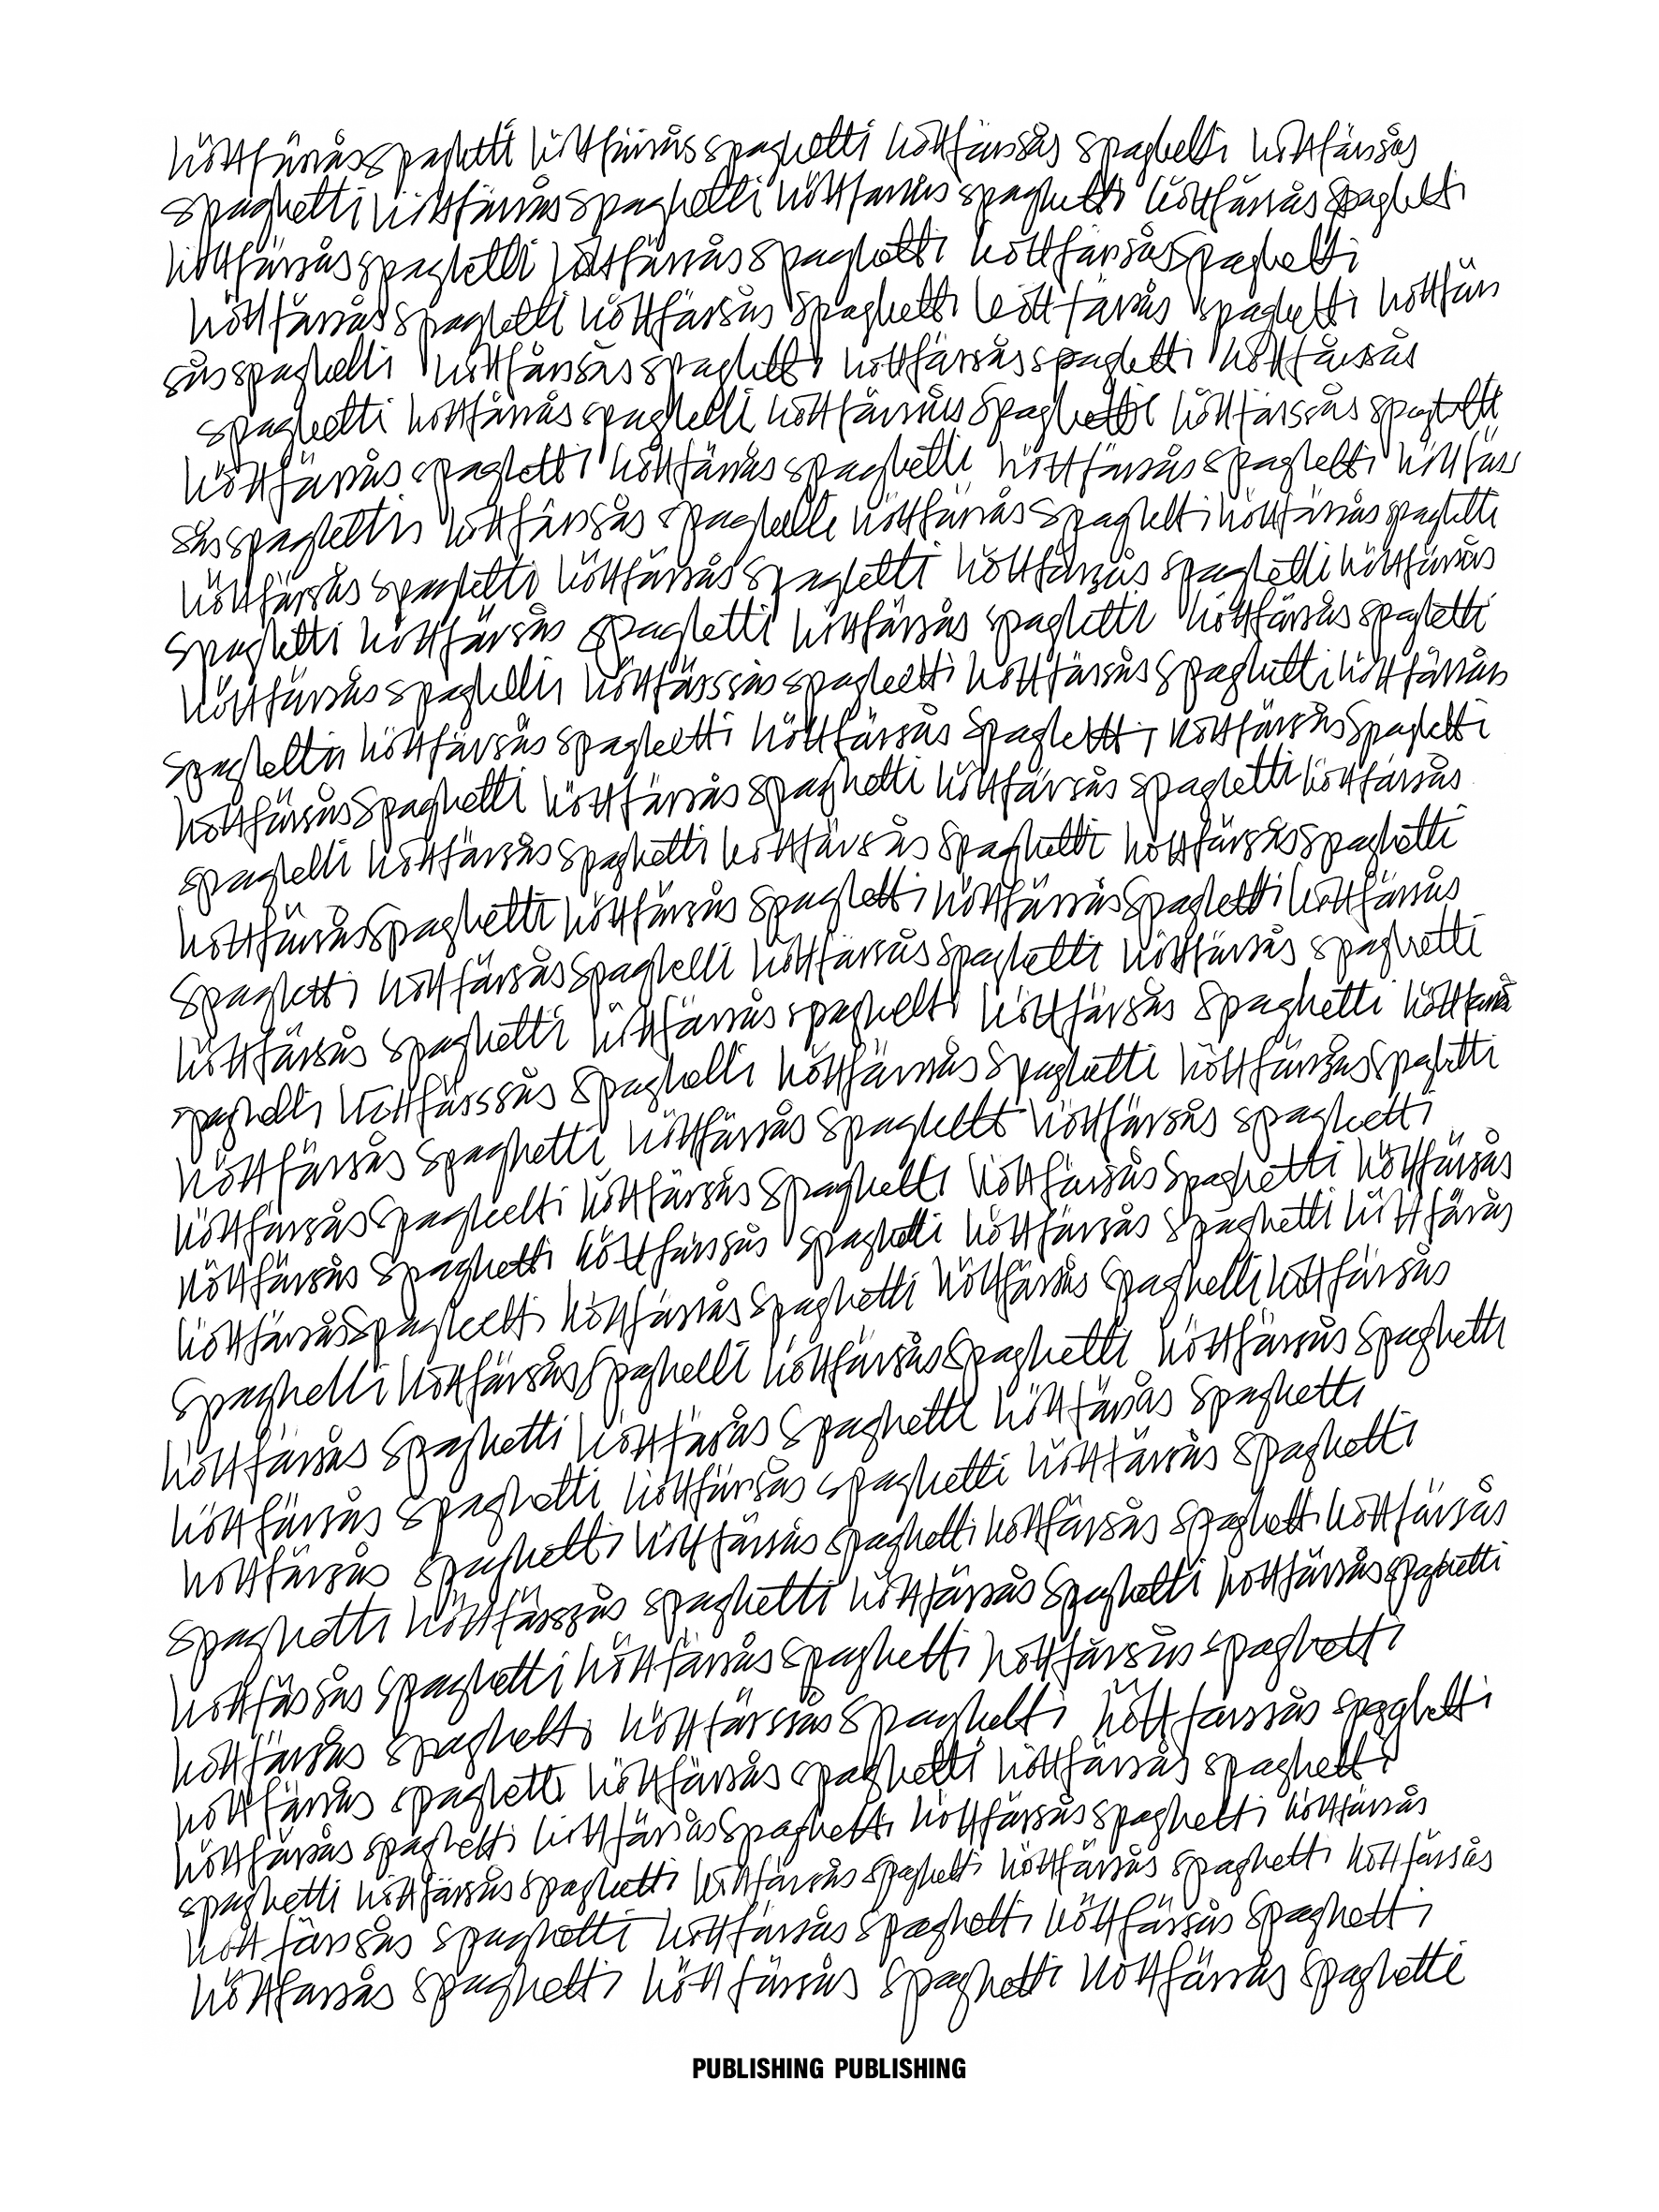 köttfärssås spaghetti köttfärssås spaghetti köttfärssås spaghetti köttfärssås
spaghetti köttfärssås spaghetti köttfärssås spaghetti köttfärssås spaghetti
köttfärssås spaghetti köttfärssås spaghetti köttfärssås spaghetti
köttfärssås spaghetti köttfärssås spaghetti köttfärssås spaghetti köttfärs
sås spaghetti köttfärssås spaghetti köttfärssås spaghetti köttfärssås
spaghetti köttfärssås spaghetti köttfärssås spaghetti köttfärssås spaghetti
köttfärssås spaghetti köttfärssås spaghetti köttfärssås spaghetti köttfärs
sås spaghetti köttfärssås spaghetti köttfärssås spaghetti köttfärssås spaghetti
köttfärssås spaghetti köttfärssås spaghetti köttfärssås spaghetti köttfärssås
spaghetti köttfärssås spaghetti köttfärssås spaghetti köttfärssås spaghetti
köttfärssås spaghetti köttfärssås spaghetti köttfärssås spaghetti köttfärssås
spaghetti köttfärssås spaghetti köttfärssås spaghetti köttfärssås spaghetti
köttfärssås spaghetti köttfärssås spaghetti köttfärssås spaghetti köttfärssås
spaghetti köttfärssås spaghetti köttfärssås spaghetti köttfärssås spaghetti
köttfärssås spaghetti köttfärssås spaghetti köttfärssås spaghetti köttfärssås
spaghetti köttfärssås spaghetti köttfärssås spaghetti köttfärssås spaghetti
köttfärssås spaghetti köttfärssås spaghetti köttfärssås spaghetti köttfärssås
spaghetti köttfärssås spaghetti köttfärssås spaghetti köttfärssås spaghetti
köttfärssås spaghetti köttfärssås spaghetti köttfärssås spaghetti
köttfärssås spaghetti köttfärssås spaghetti köttfärssås spaghetti köttfärssås
köttfärssås spaghetti köttfärssås spaghetti köttfärssås spaghetti köttfärssås
köttfärssås spaghetti köttfärssås spaghetti köttfärssås spaghetti köttfärssås
spaghetti köttfärssås spaghetti köttfärssås spaghetti köttfärssås spaghetti
köttfärssås spaghetti köttfärssås spaghetti köttfärssås spaghetti
köttfärssås spaghetti köttfärssås spaghetti köttfärssås spaghetti
köttfärssås spaghetti köttfärssås spaghetti köttfärssås spaghetti köttfärssås
spaghetti köttfärssås spaghetti köttfärssås spaghetti köttfärssås spaghetti
köttfärssås spaghetti köttfärssås spaghetti köttfärssås spaghetti
köttfärssås spaghetti köttfärssås spaghetti köttfärssås spaghetti
köttfärssås spaghetti köttfärssås spaghetti köttfärssås spaghetti
köttfärssås spaghetti köttfärssås spaghetti köttfärssås spaghetti köttfärssås
spaghetti köttfärssås spaghetti köttfärssås spaghetti köttfärssås spaghetti köttfärssås
köttfärssås spaghetti köttfärssås spaghetti köttfärssås spaghetti
köttfärssås spaghetti köttfärssås spaghetti köttfärssås spaghetti
PUBLISHING PUBLISHING